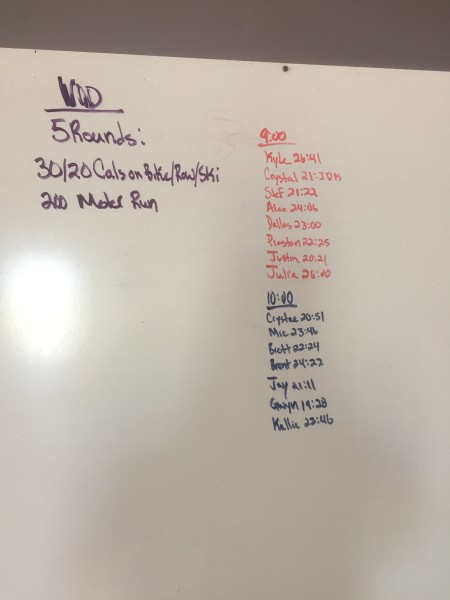 WOD
5 Rounds:
30/20 Cals on Bike/Row/Ski
200 Meter Run
9:00
Kyle 26:41
Crystal 21:JDK
Stef 21:22
Alan 24:06
Dallas 23:00
Preston 22:25
Justin 20:21
Julia 26:00
10:00
Crystal 20:51
23:46
Brett 22:24
Brent 24:22
Jay 21:11
Gwyn 19:28
Kallie 22:46